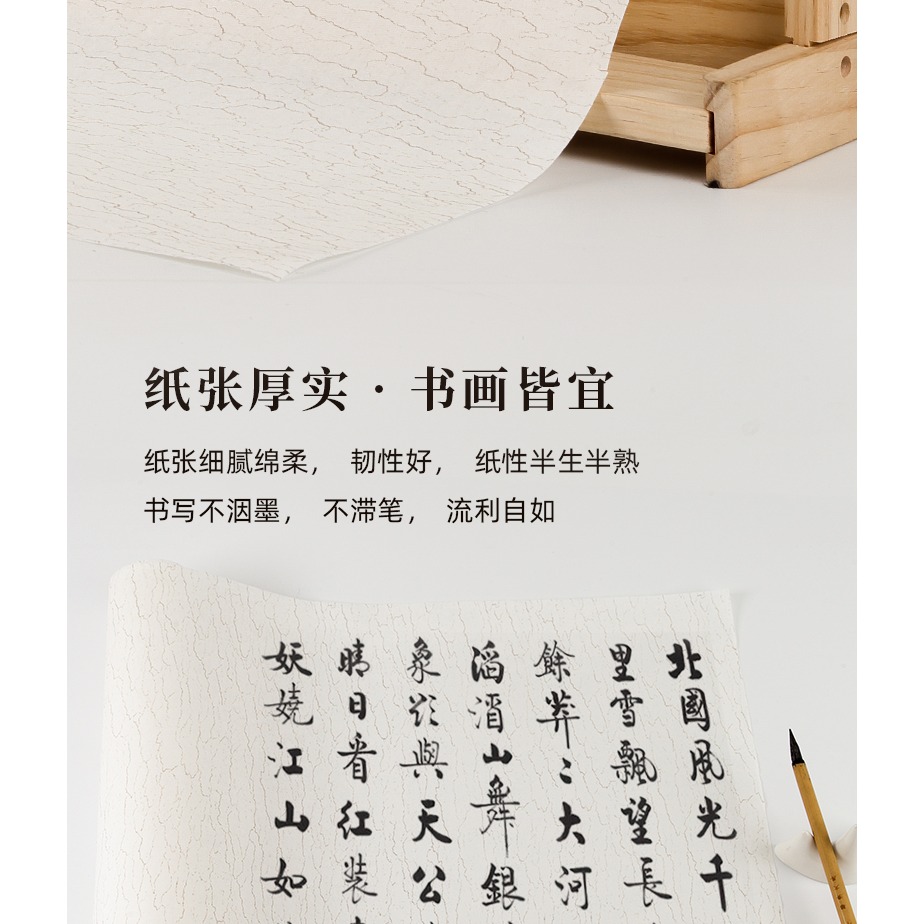 纸张厚实·书画皆宜
纸张细腻绵柔， 韧性好， 纸性半生半熟
书写不洇墨， 不滞笔， 流利自如
北國風光千
里雪飄望長
餘莽〻大河
滔滔山舞銀
象欲與天公
晴日看紅裝
妖嬈江山如